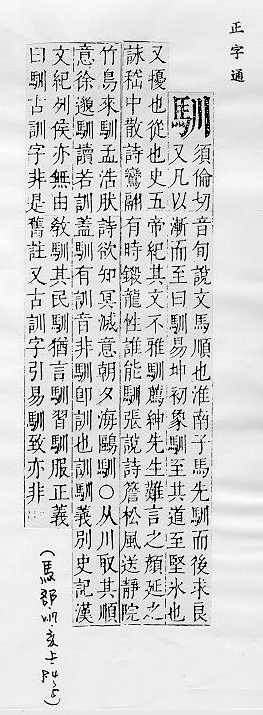 正字通
馴
須倫切音旬說文馬順也淮南子馬先馴而後求良
又凡以漸而至曰馴易坤初象馴至其道至堅氷也
又擾也從也史五帝紀其文不雅馴薦紳先生難言之顏延之
詠嵇中散詩鸞翮有時鎩龍性誰能馴張說詩簷松風送靜院
竹鳥來馴孟浩肰詩欲知冥滅意朝夕海鷗馴○从川取其順
意徐邈馴讀若訓葢馴有訓音非馴卽訓也訓馴義別史記漢
文紀列侯亦無由敎馴其民馴猶言馴習馴服正義
曰馴古訓字非是舊註又古訓字引易馴致亦非
(馬部 亥上 84)